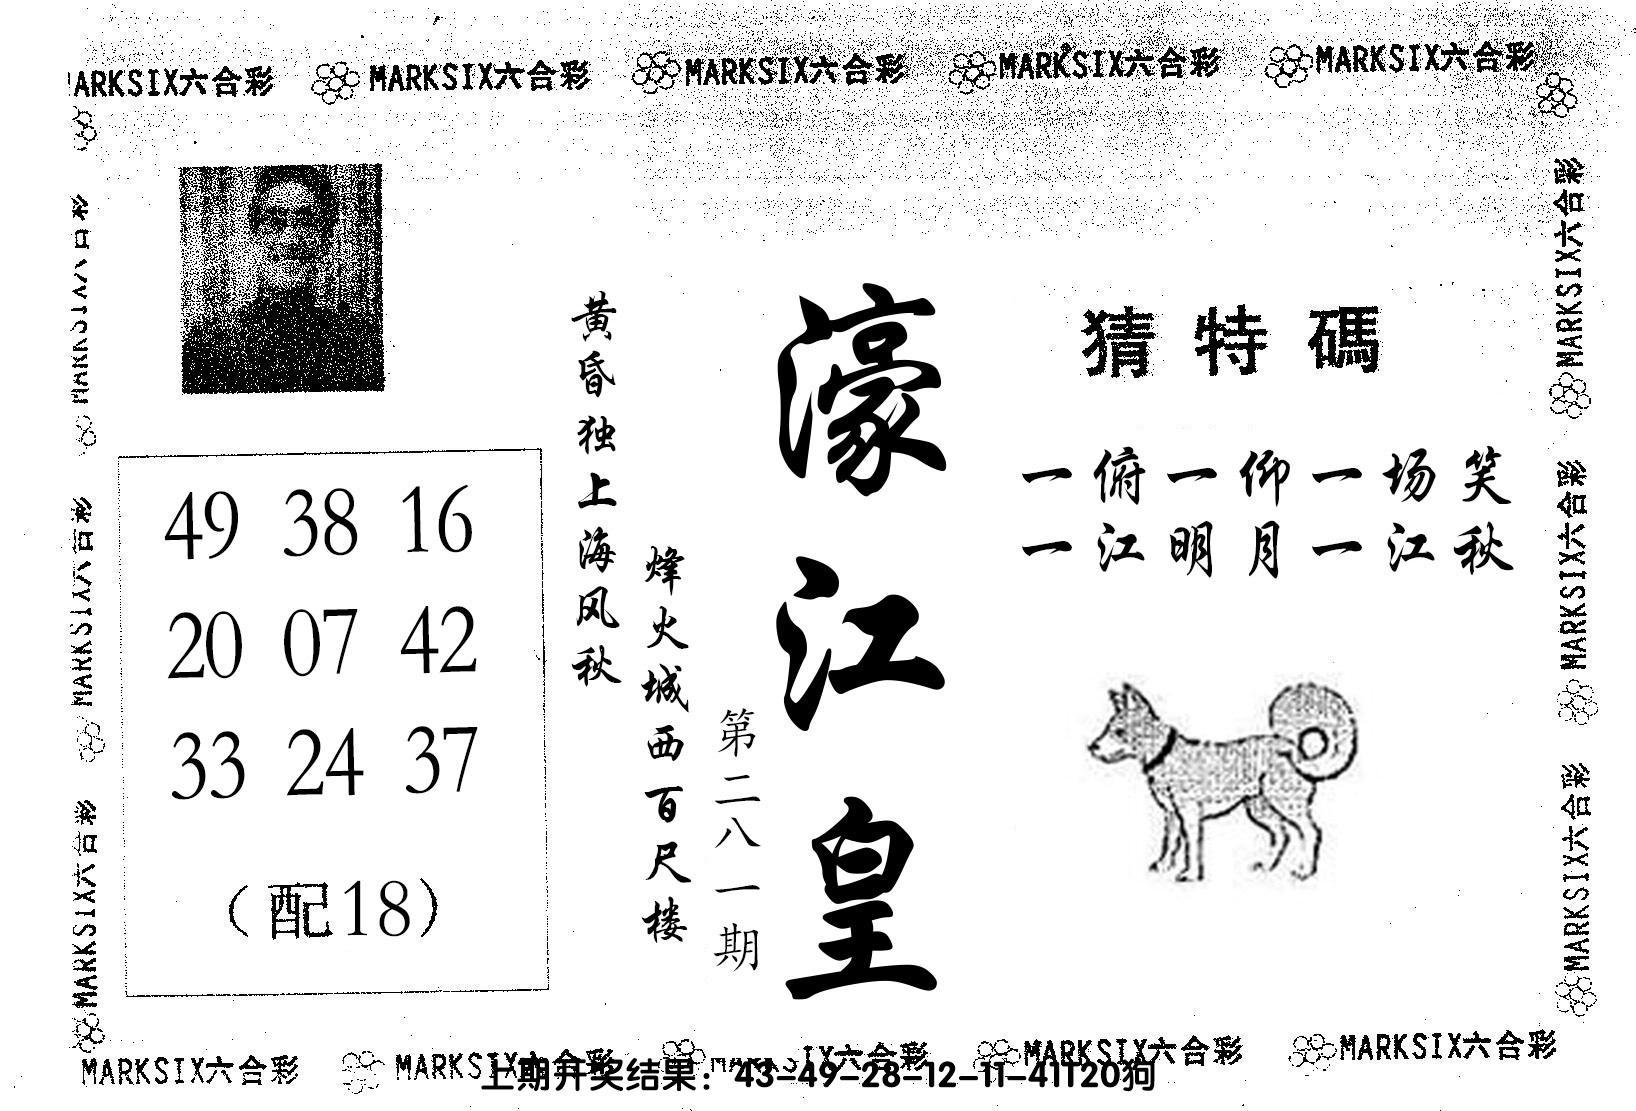 MARKSIX六合彩 MARKSIX六合彩 MARKSIX六合彩 MARKSIX六合彩
猜特碼
一俯一仰一场笑
一江明月一江秋
濠江皇
第二八一期
黄昏独上海风秋
烽火城西百尺楼
49 38 16
20 07 42
33 24 37
（配18）
MARKSIX六合彩
MARKSIX六合彩
MARKSIX六合彩
MARKSIX六合彩
MARKSIX六合彩
MARKSIX六合彩 MARKSIX六合彩 MARKSIX六合彩 MARKSIX六合彩
上期开奖结果：43-49-28-12-11-41T20狗